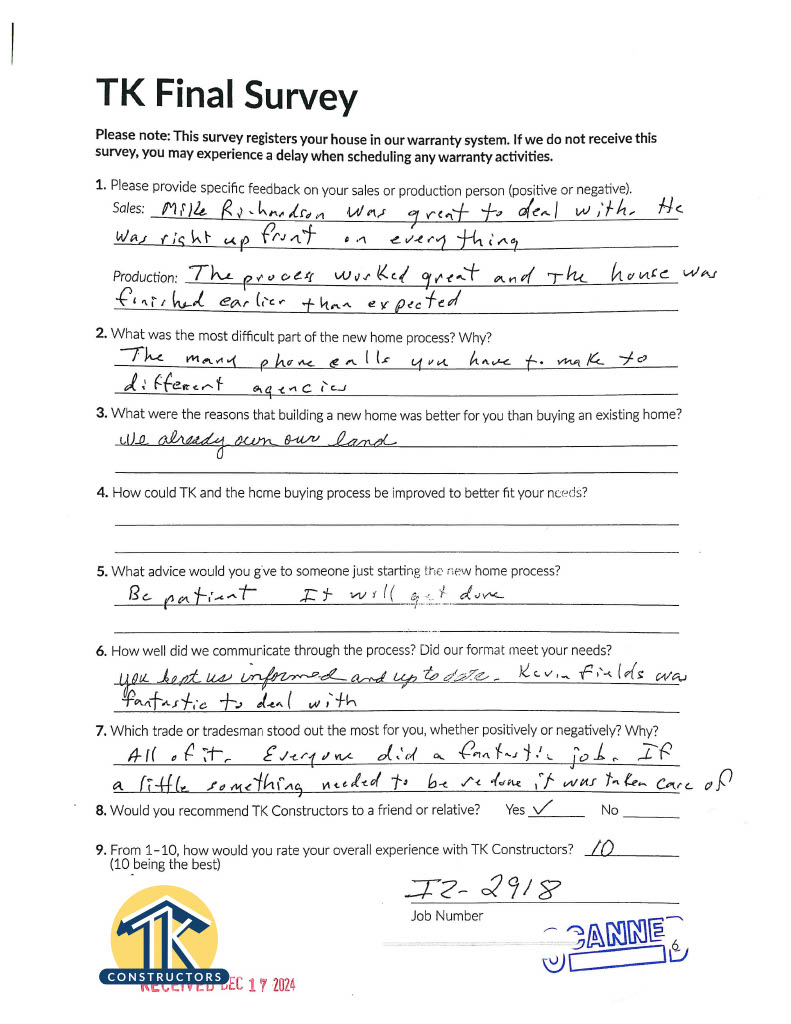 TK Final Survey
Please note: This survey registers your house in our warranty system. If we do not receive this
survey, you may experience a delay when scheduling any warranty activities.
1. Please provide specific feedback on your sales or production person (positive or negative).
Sales: Mike Richardson was great to deal with. He
was right up front on every thing
Production: The process worked great and The house was
finished earlier than expected
2. What was the most difficult part of the new home process? Why?
The many phone calls you have to make to
different agencies
3. What were the reasons that building a new home was better for you than buying an existing home?
we already own our land
4. How could TK and the home buying process be improved to better fit your needs?
5. What advice would you give to someone just starting the new home process?
Be patient It will get done
6. How well did we communicate through the process? Did our format meet your needs?
you kept us informed and up to date. Kevin Fields was
fantastic to deal with
7. Which trade or tradesman stood out the most for you, whether positively or negatively? Why?
All of it. Everyone did a fantastic job. If
a little something needed to be redone it was taken care of
8. Would you recommend TK Constructors to a friend or relative? Yes ✓ No
9. From 1-10, how would you rate your overall experience with TK Constructors? 10
(10 being the best)
IZ-2918
Job Number
CANNE
6
TK
CONSTRUCTORS
RECEIVED DEC 17 2024